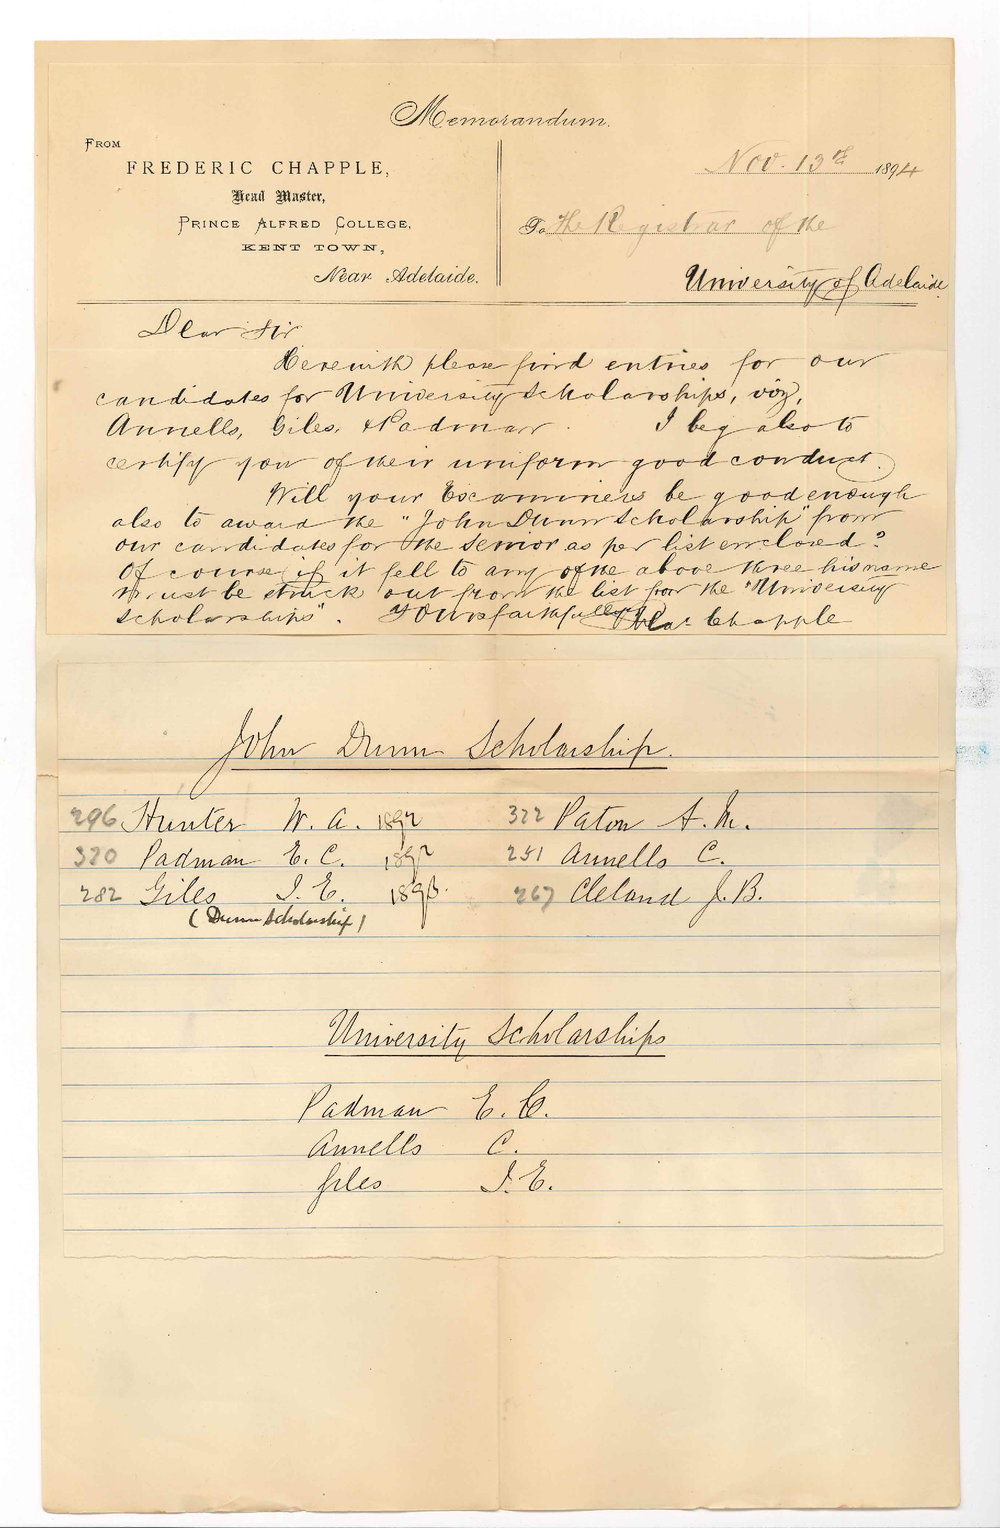 Memorandum.
FROM
FREDERIC CHAPPLE,
Head Master,
PRINCE ALFRED COLLEGE,
KENT TOWN,
Near Adelaide.
Nov. 13th 1894
To The Registrar of the
University of Adelaide.
Dear Sir
Herewith please find entries for our
candidates for University Scholarships, viz,
Annells, Giles, & Padman. I beg also to
certify you of their uniform good conduct.
Will your Examiners be good enough
also to award the "John Dunn Scholarship" from
our candidates for the Senior as per list enclosed?
Of course if it fell to any of the above three his name
must be struck out from the list for the "University
Scholarships". Yours faithfully Chapple
John Dunn Scholarship.
296 Hunter W. A. 1892 322 Paton A. M.
320 Padman E. C. 1892 251 Annells C.
282 Giles I. E. 1893. 267 Cleland J. B.
(Dunn Scholarship)
University Scholarships
Padman E. C.
Annells C.
Giles I. E.